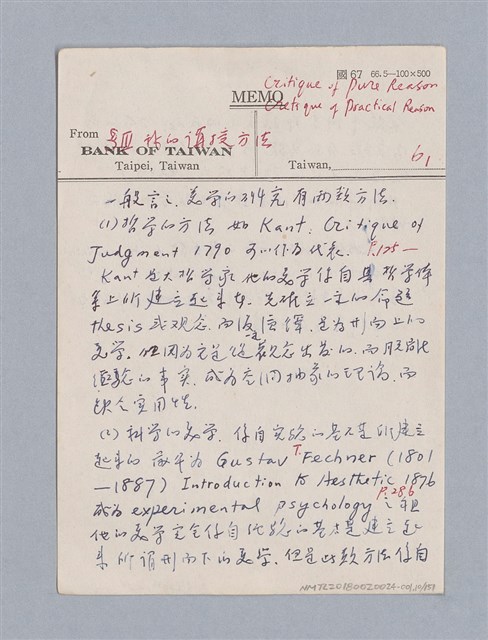 國 67 66.5—100×500
Critique of Pure Reason
MEMO
Critique of Practical Reason
From
第III 我的講授方法
BANK OF TAIWAN
Taipei, Taiwan
Taiwan,
61
一般言之、美学的研究有兩款方法.
(1)哲学的方法 如 Kant, Critique of
Judgment 1790 可以作為代表. P.125—
Kant是大哲学家他的美学係自其哲学体
系上所建立起來的. 先確立一主的命題
thesis或观念.而後演繹.是為形而上的
美学。但因為它是從观念出發的.而脫離
經驗的事实.成為空洞抽象的理論.而
缺乏実用性.
(2)科学的美学.係自实驗的基礎所建立
起來的 始于為 Gustav T. Fechner (1801
—1887) Introduction to Aesthetic 1876
P.286
成為 experimental psychology 之祖
他的美学完全係自化驗的基礎建立起
來所謂形而下的美学.但是此款方法係自
NMTL20180020024-001,10/158